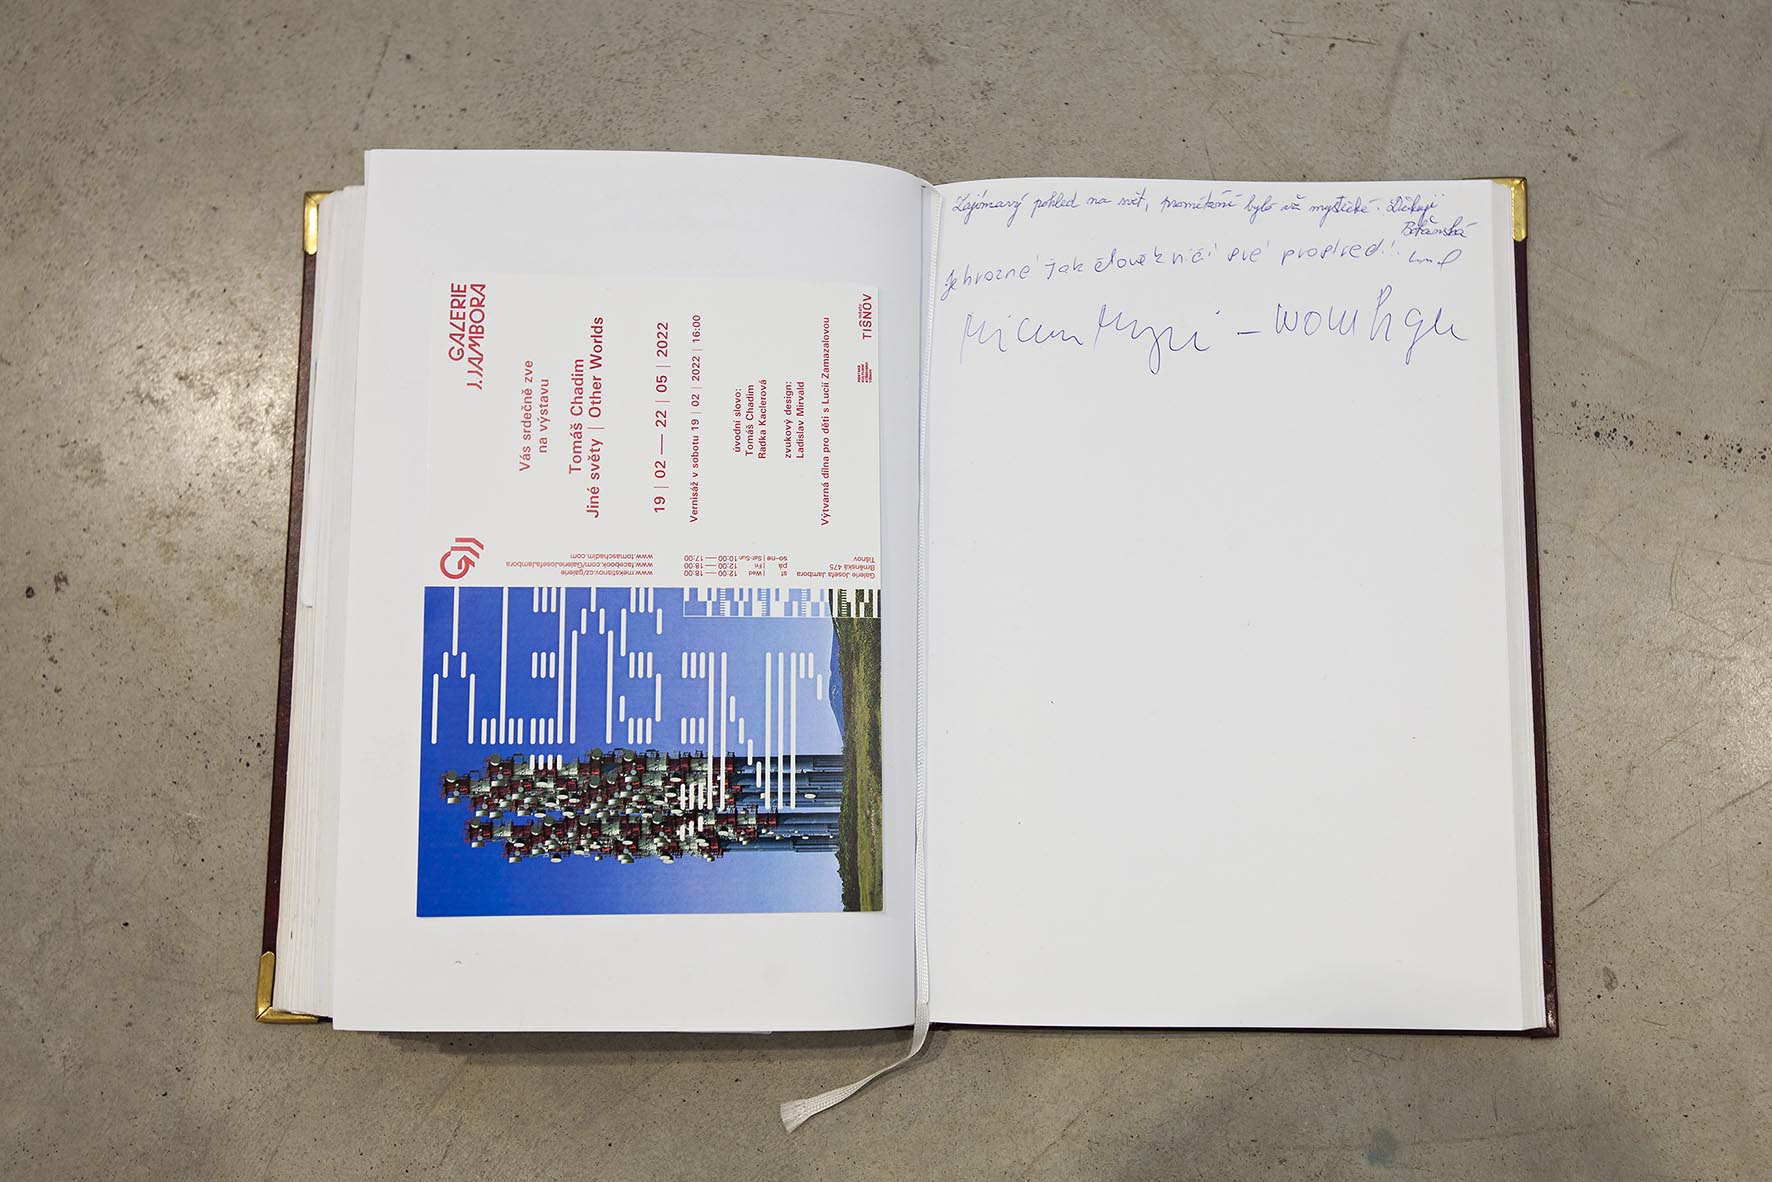 GALERIE
J. JAMBORA
Vás srdečně zve
na výstavu
Tomáš Chadim
Jiné světy | Other Worlds
19 | 02 — 22 | 05 | 2022
Vernisáž v sobotu 19 | 02 | 2022 | 16:00
úvodní slovo:
Tomáš Chadim
Radka Kaclerová
zvukový design:
Ladislav Mirvald
Výtvarná dílna pro děti s Lucií Zamazalovou
město
TIŠNOV
www.mekstisnov.cz/galerie
www.facebook.com/GalerieJosefaJambora
www.tomaschadim.com
st | Wed 12:00 — 18:00
pá | Fri 12:00 — 18:00
so–ne | Sat-Sun 10:00 — 17:00
Galerie Josefa Jambora
Brněnská 475
Tišnov
Zajímavý pohled na svět, promítání bylo až mystické. Děkuji
Je hrozné jak člověk ničí své prostředí!